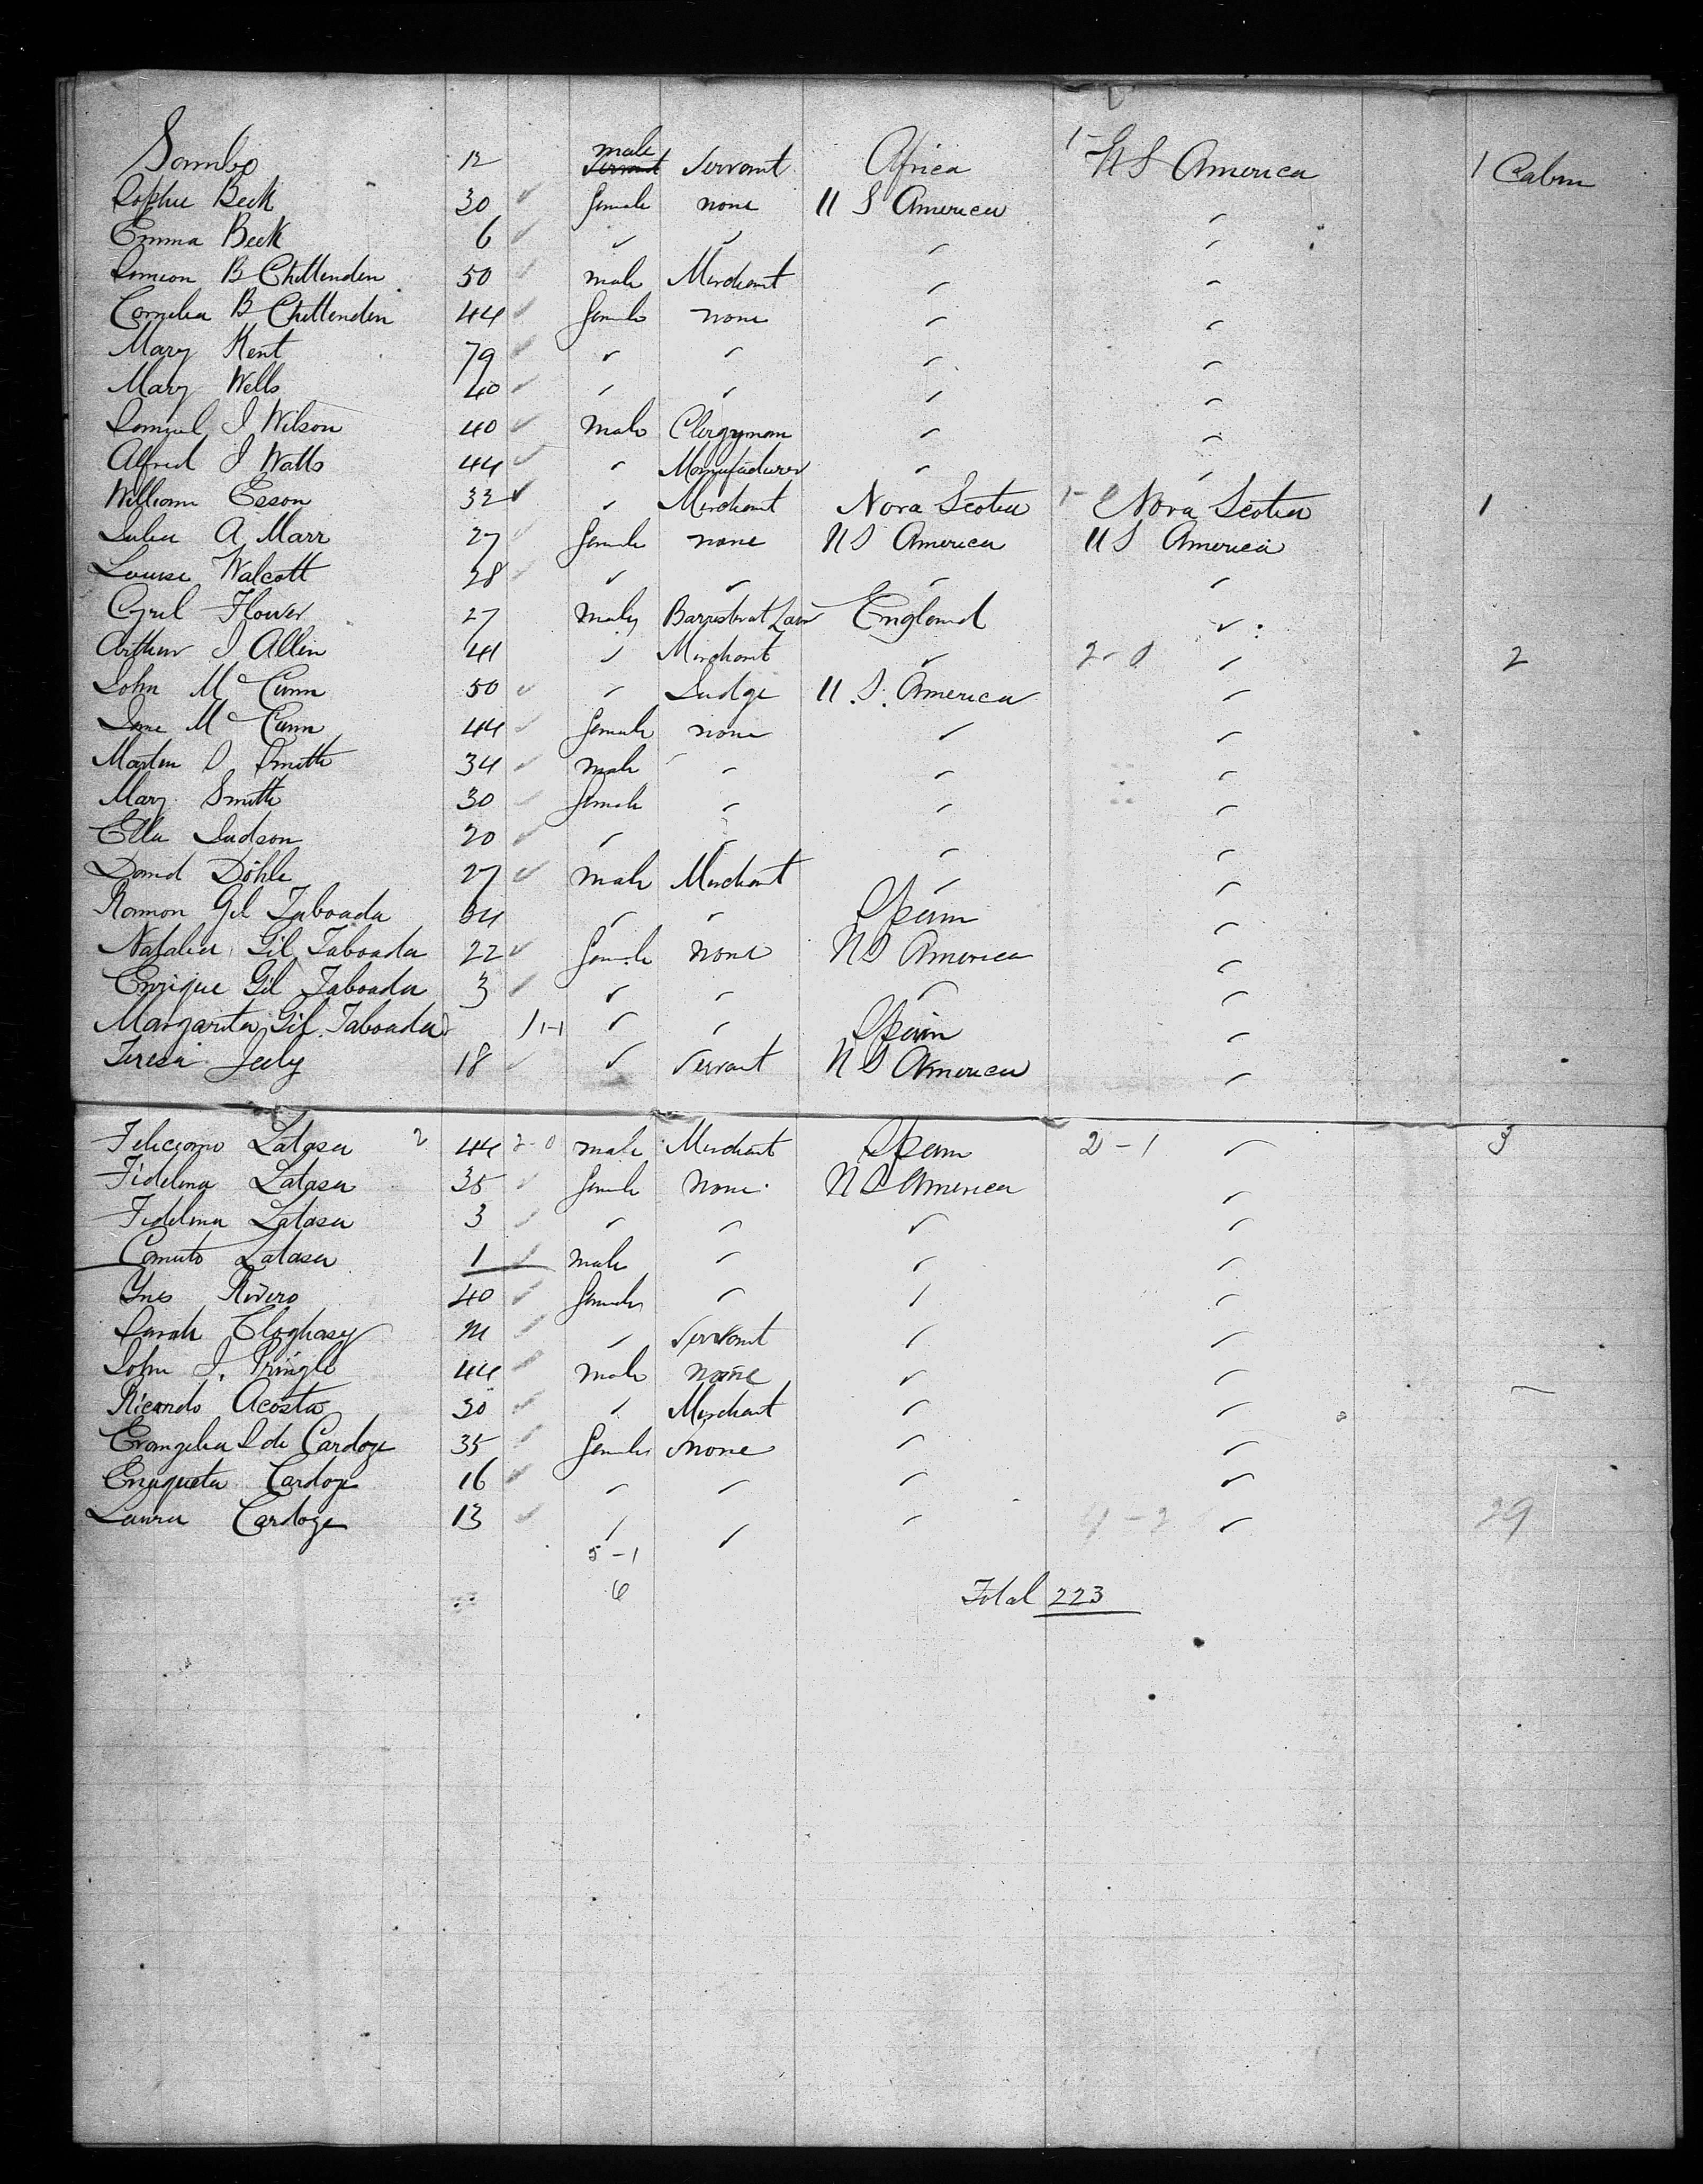 Sambo 12 male Servant Servant Africa 1- U S America 1 Cabin
Sophie Beck 30 ✓ female none U S America ✓
Emma Beck 6 ✓ ✓ ✓ ✓ ✓
Simeon B Chittenden 50 ✓ male Merchant ✓ ✓
Cornelia B Chittenden 44 ✓ female none ✓ ✓
Mary Kent 79 ✓ ✓ ✓ ✓ ✓
Mary Wells 40 ✓ ✓ ✓ ✓ ✓
Samuel J Wilson 40 ✓ male Clergyman ✓ ✓
Alfred J Watts 44 ✓ ✓ Manufacturer ✓ ✓
William Esson 32 ✓ ✓ Merchant Nova Scotia 1-0 Nova Scotia 1
Julia A Marr 27 ✓ female none U S America U S America
Louise Walcott 28 ✓ ✓ ✓ ✓ ✓
Cyril Flower 27 male Barrister at Law England ✓
Arthur J Allen 41 ✓ Merchant ✓ 2-0 ✓ 2
John McCunn 50 ✓ ✓ Judge U. S. America ✓
Jane McCunn 44 ✓ female none ✓ ✓
Martin S Smith 34 ✓ male ✓ ✓ ✓
Mary Smith 30 ✓ female ✓ ✓ ✓
Ella Judson 20 ✓ ✓ ✓ ✓ ✓
David Döhle 27 ✓ male Merchant ✓ ✓
Ramon Gil Taboada 34 ✓ ✓ Spain ✓
Natalia Gil Taboada 22 ✓ female none U S America ✓
Enrique Gil Taboada 3 ✓ ✓ ✓ ✓ ✓
Margarita Gil Taboada 1 1-1 ✓ ✓ Spain ✓
Teresa 18 ✓ ✓ Servant U S America ✓
Feliciano Latasa 2 44 2-0 male Merchant Spain 2-1 ✓ 3
Fidelina Latasa 35 ✓ female none U S America ✓
Fidelina Latasa 3 ✓ ✓ ✓ ✓ ✓
Latasa 1 ✓ male ✓ ✓ ✓
Ynes Rivero 40 ✓ female ✓ ✓ ✓
Sarah ✓ ✓ Servant ✓ ✓
John J. Pringle 44 ✓ male none ✓ ✓
Ricardo Acosta 30 ✓ ✓ Merchant ✓ ✓
Evangelia S de Cardoze 35 ✓ female none ✓ ✓
Enriqueta Cardoze 16 ✓ ✓ ✓ ✓ ✓
Laura Cardoze 13 ✓ ✓ ✓ ✓ ✓ 29
5-1
6 Total 223